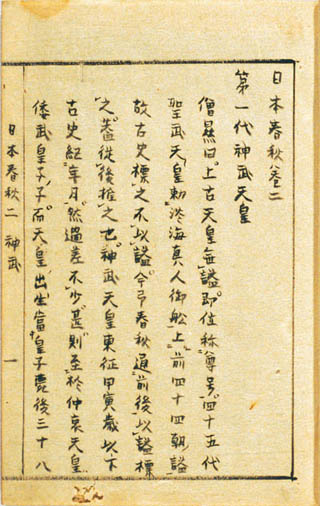 日本春秋卷二
第一代神武天皇
僧曰。上古天皇無謚。即位称尊号。四十五代
聖武天皇勅淡海真人御舩上前四十四朝謚
故古史標之不以謚。今春秋通前後以謚標
之。蓋從後推之也。神武天皇東征甲寅歳以下
古史紀年月。然過差不少。甚則至於仲哀天皇
倭武皇子子。而天皇出生當皇子薨後三十八
日本春秋二 神武 一